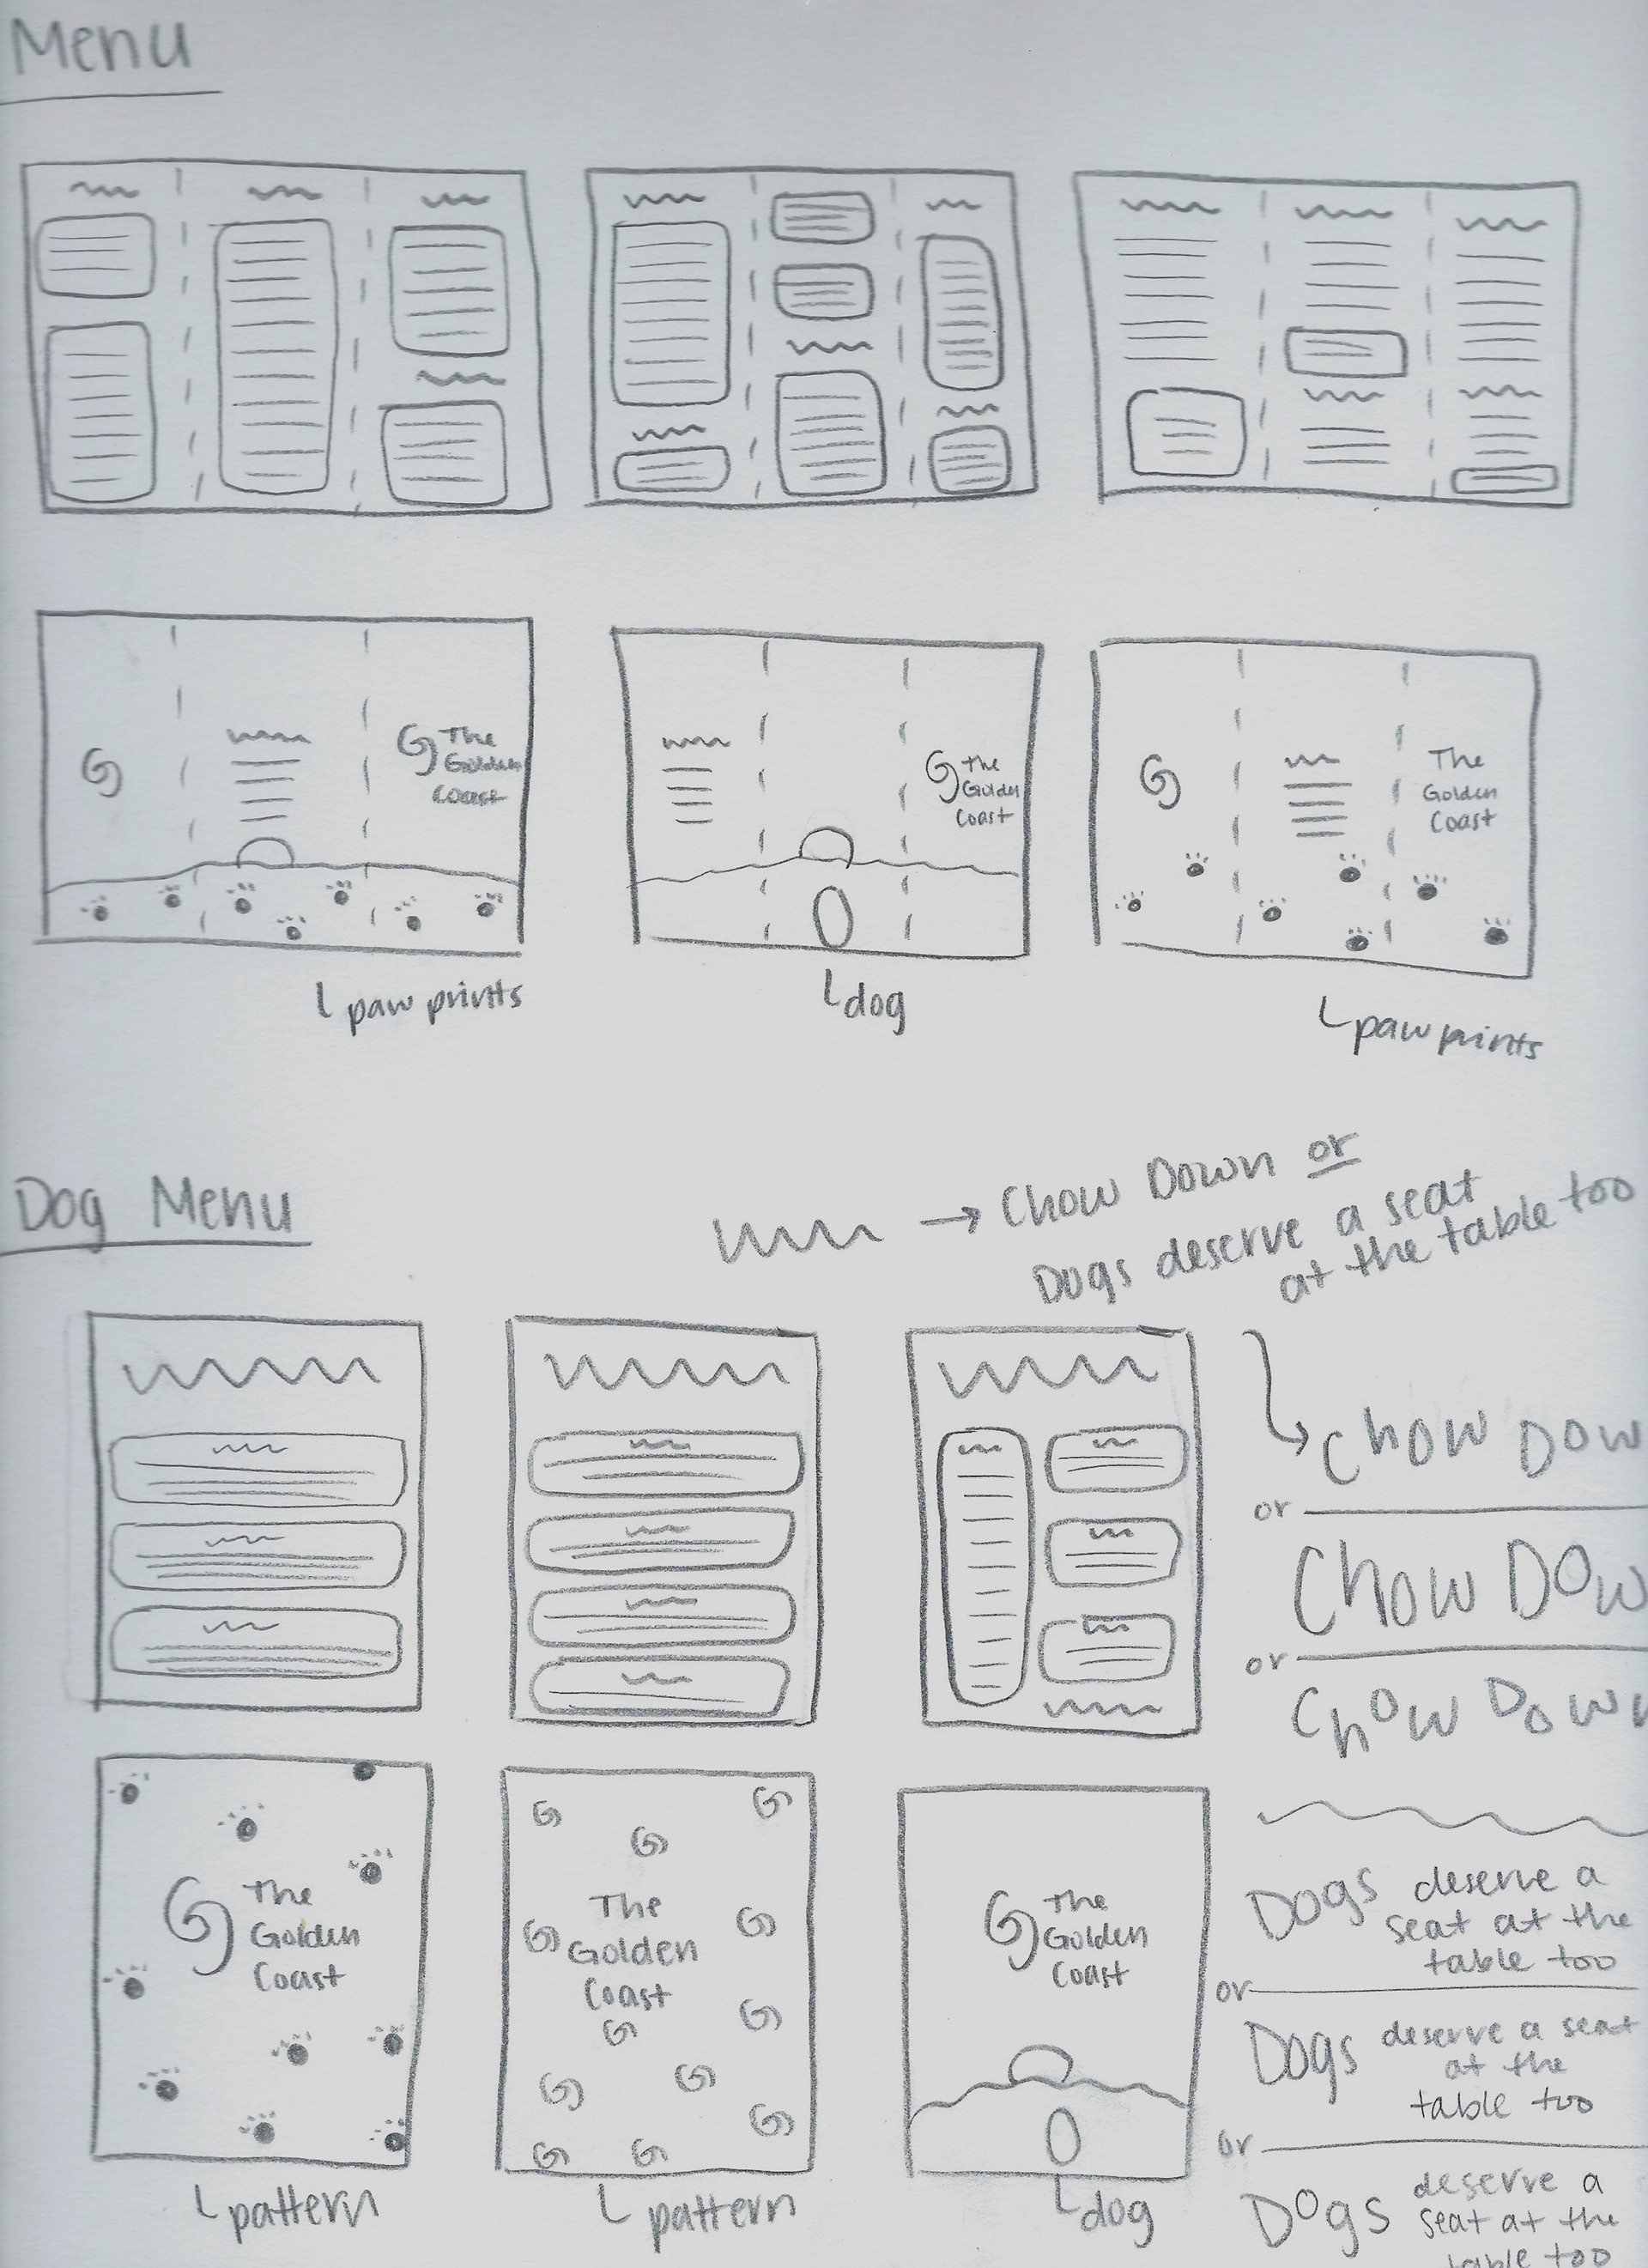 Menu
The
Golden
Coast
The
Golden
Coast
The
Golden
Coast
paw prints
dog
paw prints
Dog Menu
Chow Down or
Dogs deserve a seat
at the table too
Chow Dow
or
Chow Dow
or
Chow Down
The
Golden
Coast
The
Golden
Coast
The
Golden
Coast
Dogs deserve a
seat at the
table too
or
Dogs deserve a seat
at the
table too
or
Dogs deserve a
seat at the
table too
pattern
pattern
dog